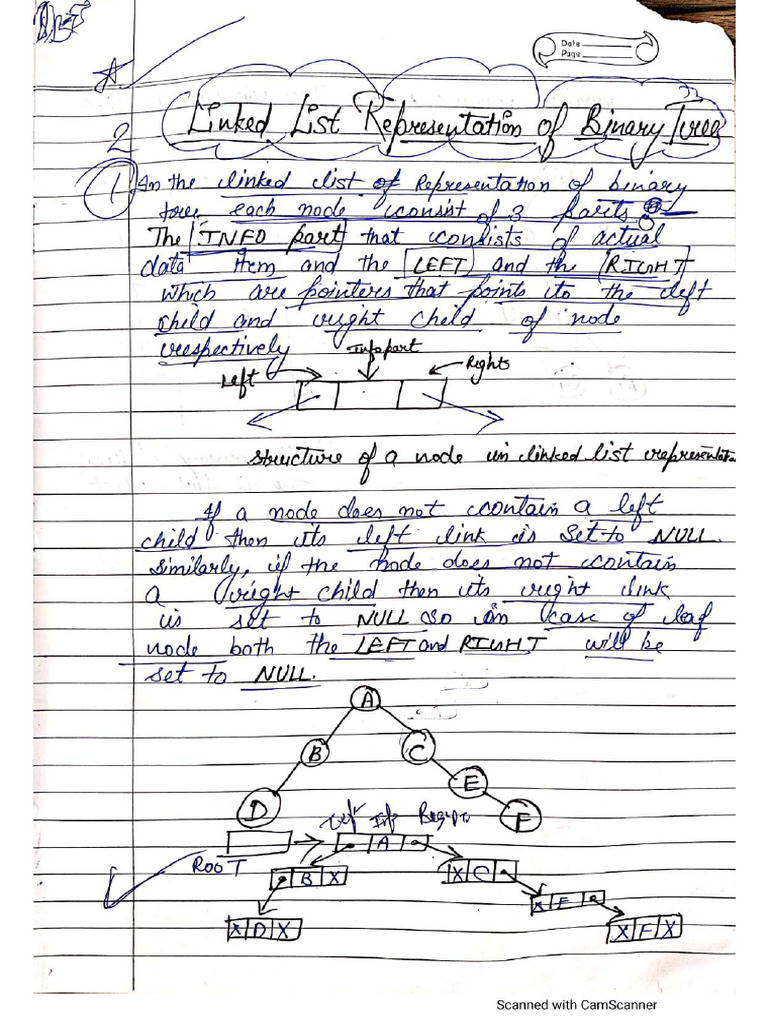 Date
Page
2
Linked List Representation of Binary Tree
1 In the linked list of Representation of binary
tree each node consist of 3 parts
The INFO part that consists of actual
data item and the LEFT and the RIGHT
which are pointers that points to the left
child and right child of node
respectively
Info part
Left
Rights
structure of a node in linked list representation
If a node does not contain a left
child then its left link is set to NULL.
Similarly, if the node does not contain
a right child then its right link
is set to NULL so in case of leaf
node both the LEFT and RIGHT will be
set to NULL.
A
B C
E
D F
Left Info
A
ROOT
B X X C
X E
X D X X F X
Scanned with CamScanner